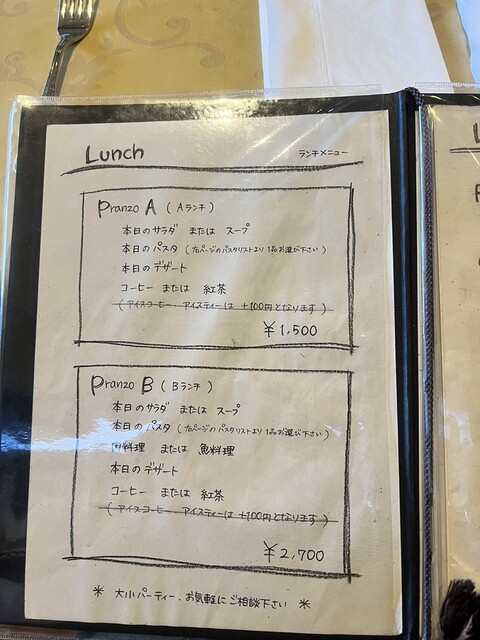 Lunch ランチメニュー
Pranzo A (Aランチ)
本日のサラダ または スープ
本日のパスタ (右ページのパスタリストより1品お選び下さい)
本日のデザート
コーヒー または 紅茶
(アイスコーヒー・アイスティーは +100円となります)
¥1,500
Pranzo B (Bランチ)
本日のサラダ または スープ
本日のパスタ (右ページのパスタリストより1品お選び下さい)
肉料理 または 魚料理
本日のデザート
コーヒー または 紅茶
(アイスコーヒー・アイスティーは +100円となります)
¥2,700
* 大小パーティー・お気軽にご相談下さい *